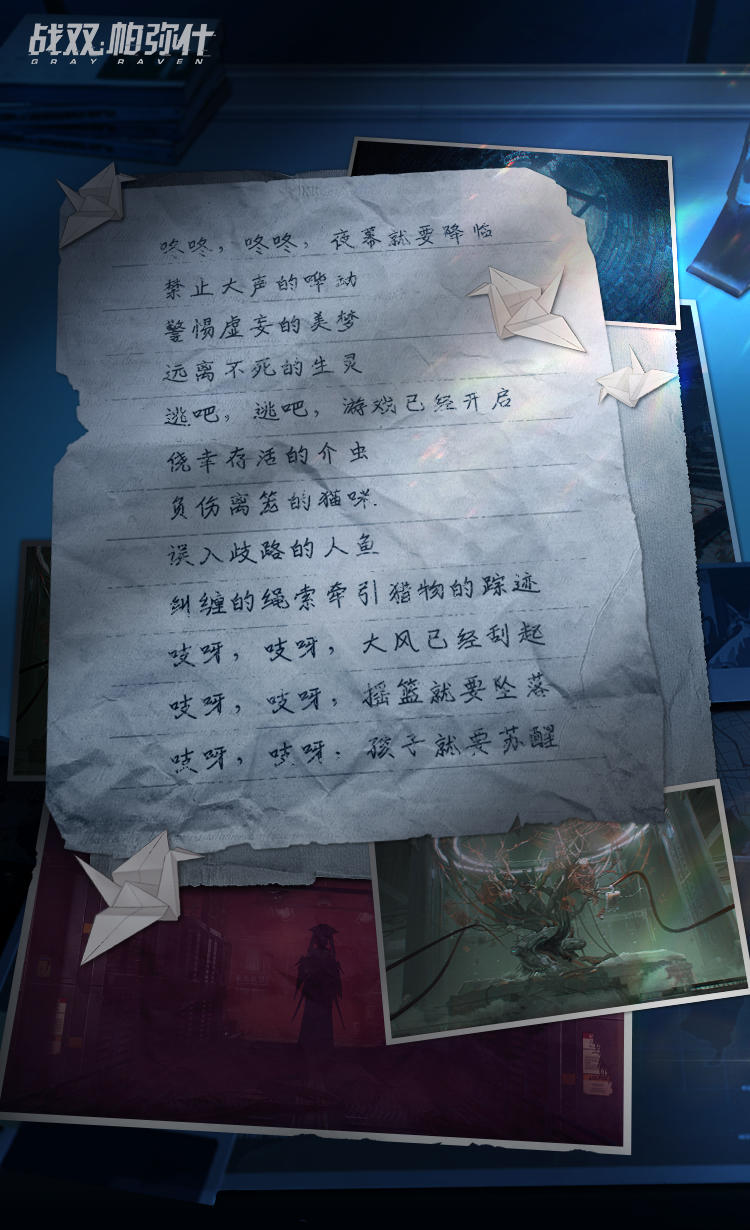 战双帕弥什
GRAY RAVEN
咚咚，咚咚，夜幕就要降临
禁止大声的哗动
警惕虚妄的美梦
远离不死的生灵
逃吧，逃吧，游戏已经开启
侥幸存活的介虫
负伤离笼的猫咪.
误入歧路的人鱼
纠缠的绳索牵引猎物的踪迹
吱呀，吱呀，大风已经刮起
吱呀，吱呀，摇篮就要坠落
吱呀，吱呀，孩子就要苏醒